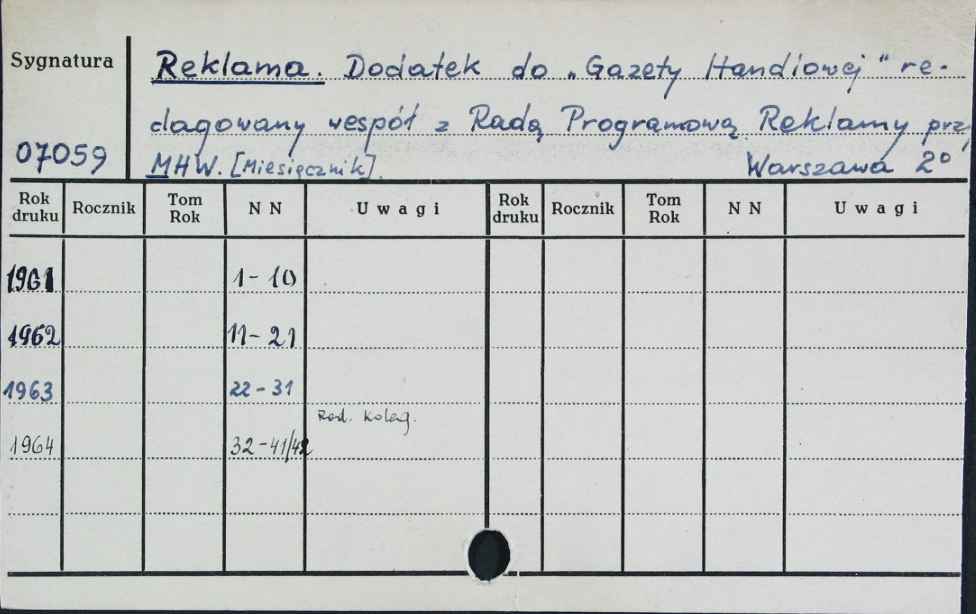 Sygnatura
Reklama. Dodatek do „Gazety Handlowej" re-
dagowany wespół z Radą Programową Reklamy przy
07059
MHW. [Miesięcznik]. Warszawa 2°
Rok druku Rocznik Tom Rok N N Uwagi Rok druku Rocznik Tom Rok N N Uwagi
1961 1-10
1962 11-21
1963 22-31
Red. Koleg.
1964 32-41/42